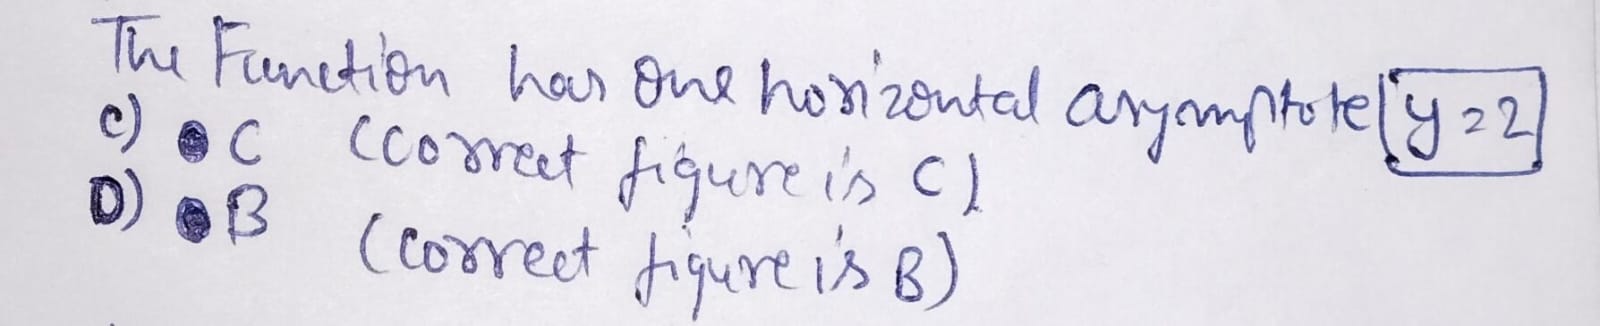 The Function has one horizontal asymptote [y=2]
C) ● C (Correct figure is C)
D) ● B (correct figure is B)